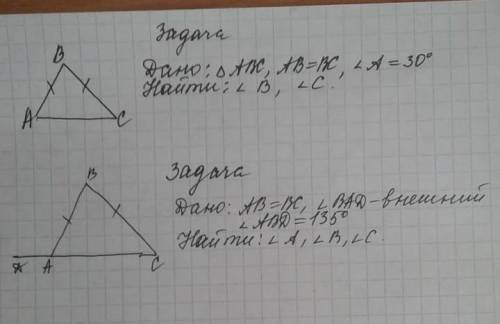 Задача
Дано: △ ABC, AB=BC, ∠A=30°
Найти: ∠B, ∠C.
B
A
C
Задача
Дано: AB=BC, ∠BAD-внешний
∠ABD=135°
Найти: ∠A, ∠B, ∠C.
B
A
C